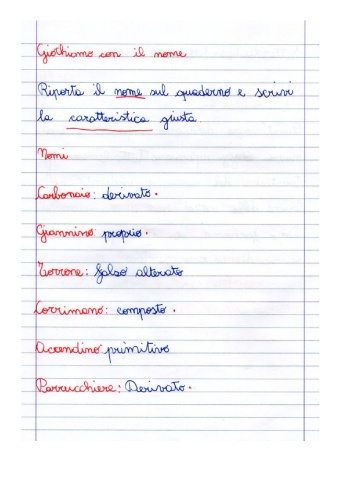 Giochiamo con il nome
Riporta il nome sul quaderno e scrivi
la caratteristica giusta.
Nomi
Carbonaio: derivato.
Giannino: proprio.
Torrone: falso alterato
Corrimano: composto.
Accendino primitivo
Parrucchiere: Derivato.